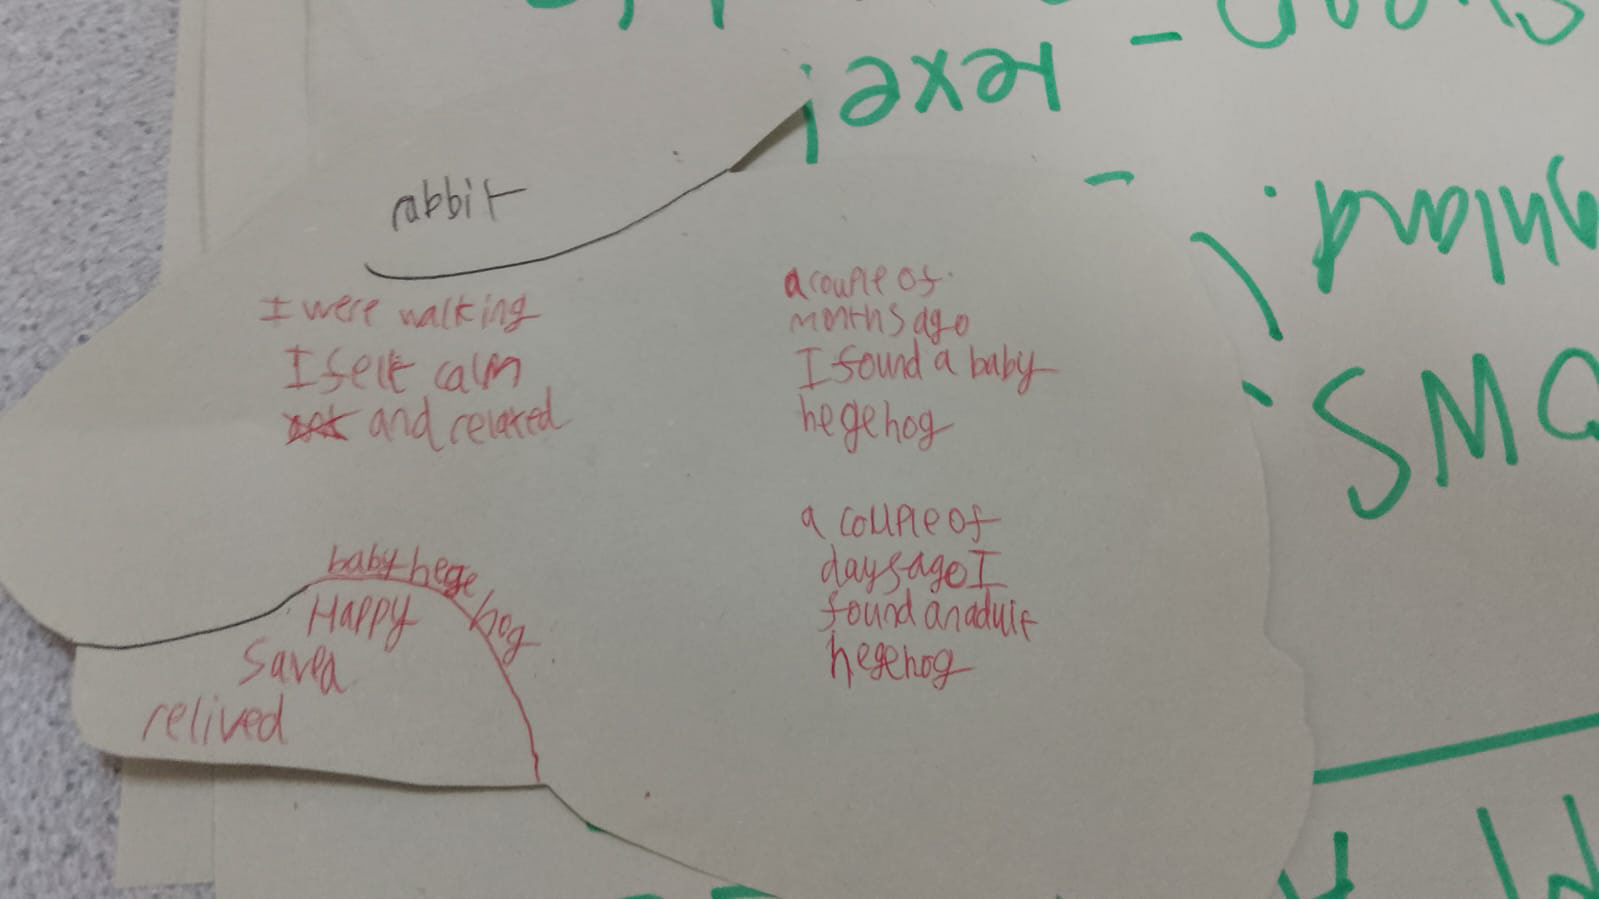 rabbit
I were walking
I felt calm
and relaxed
a couple of
months ago
I found a baby
hegehog
a couple of
days ago I
found an adult
hegehog
baby hege
hog
Happy
saved
relived
SMO